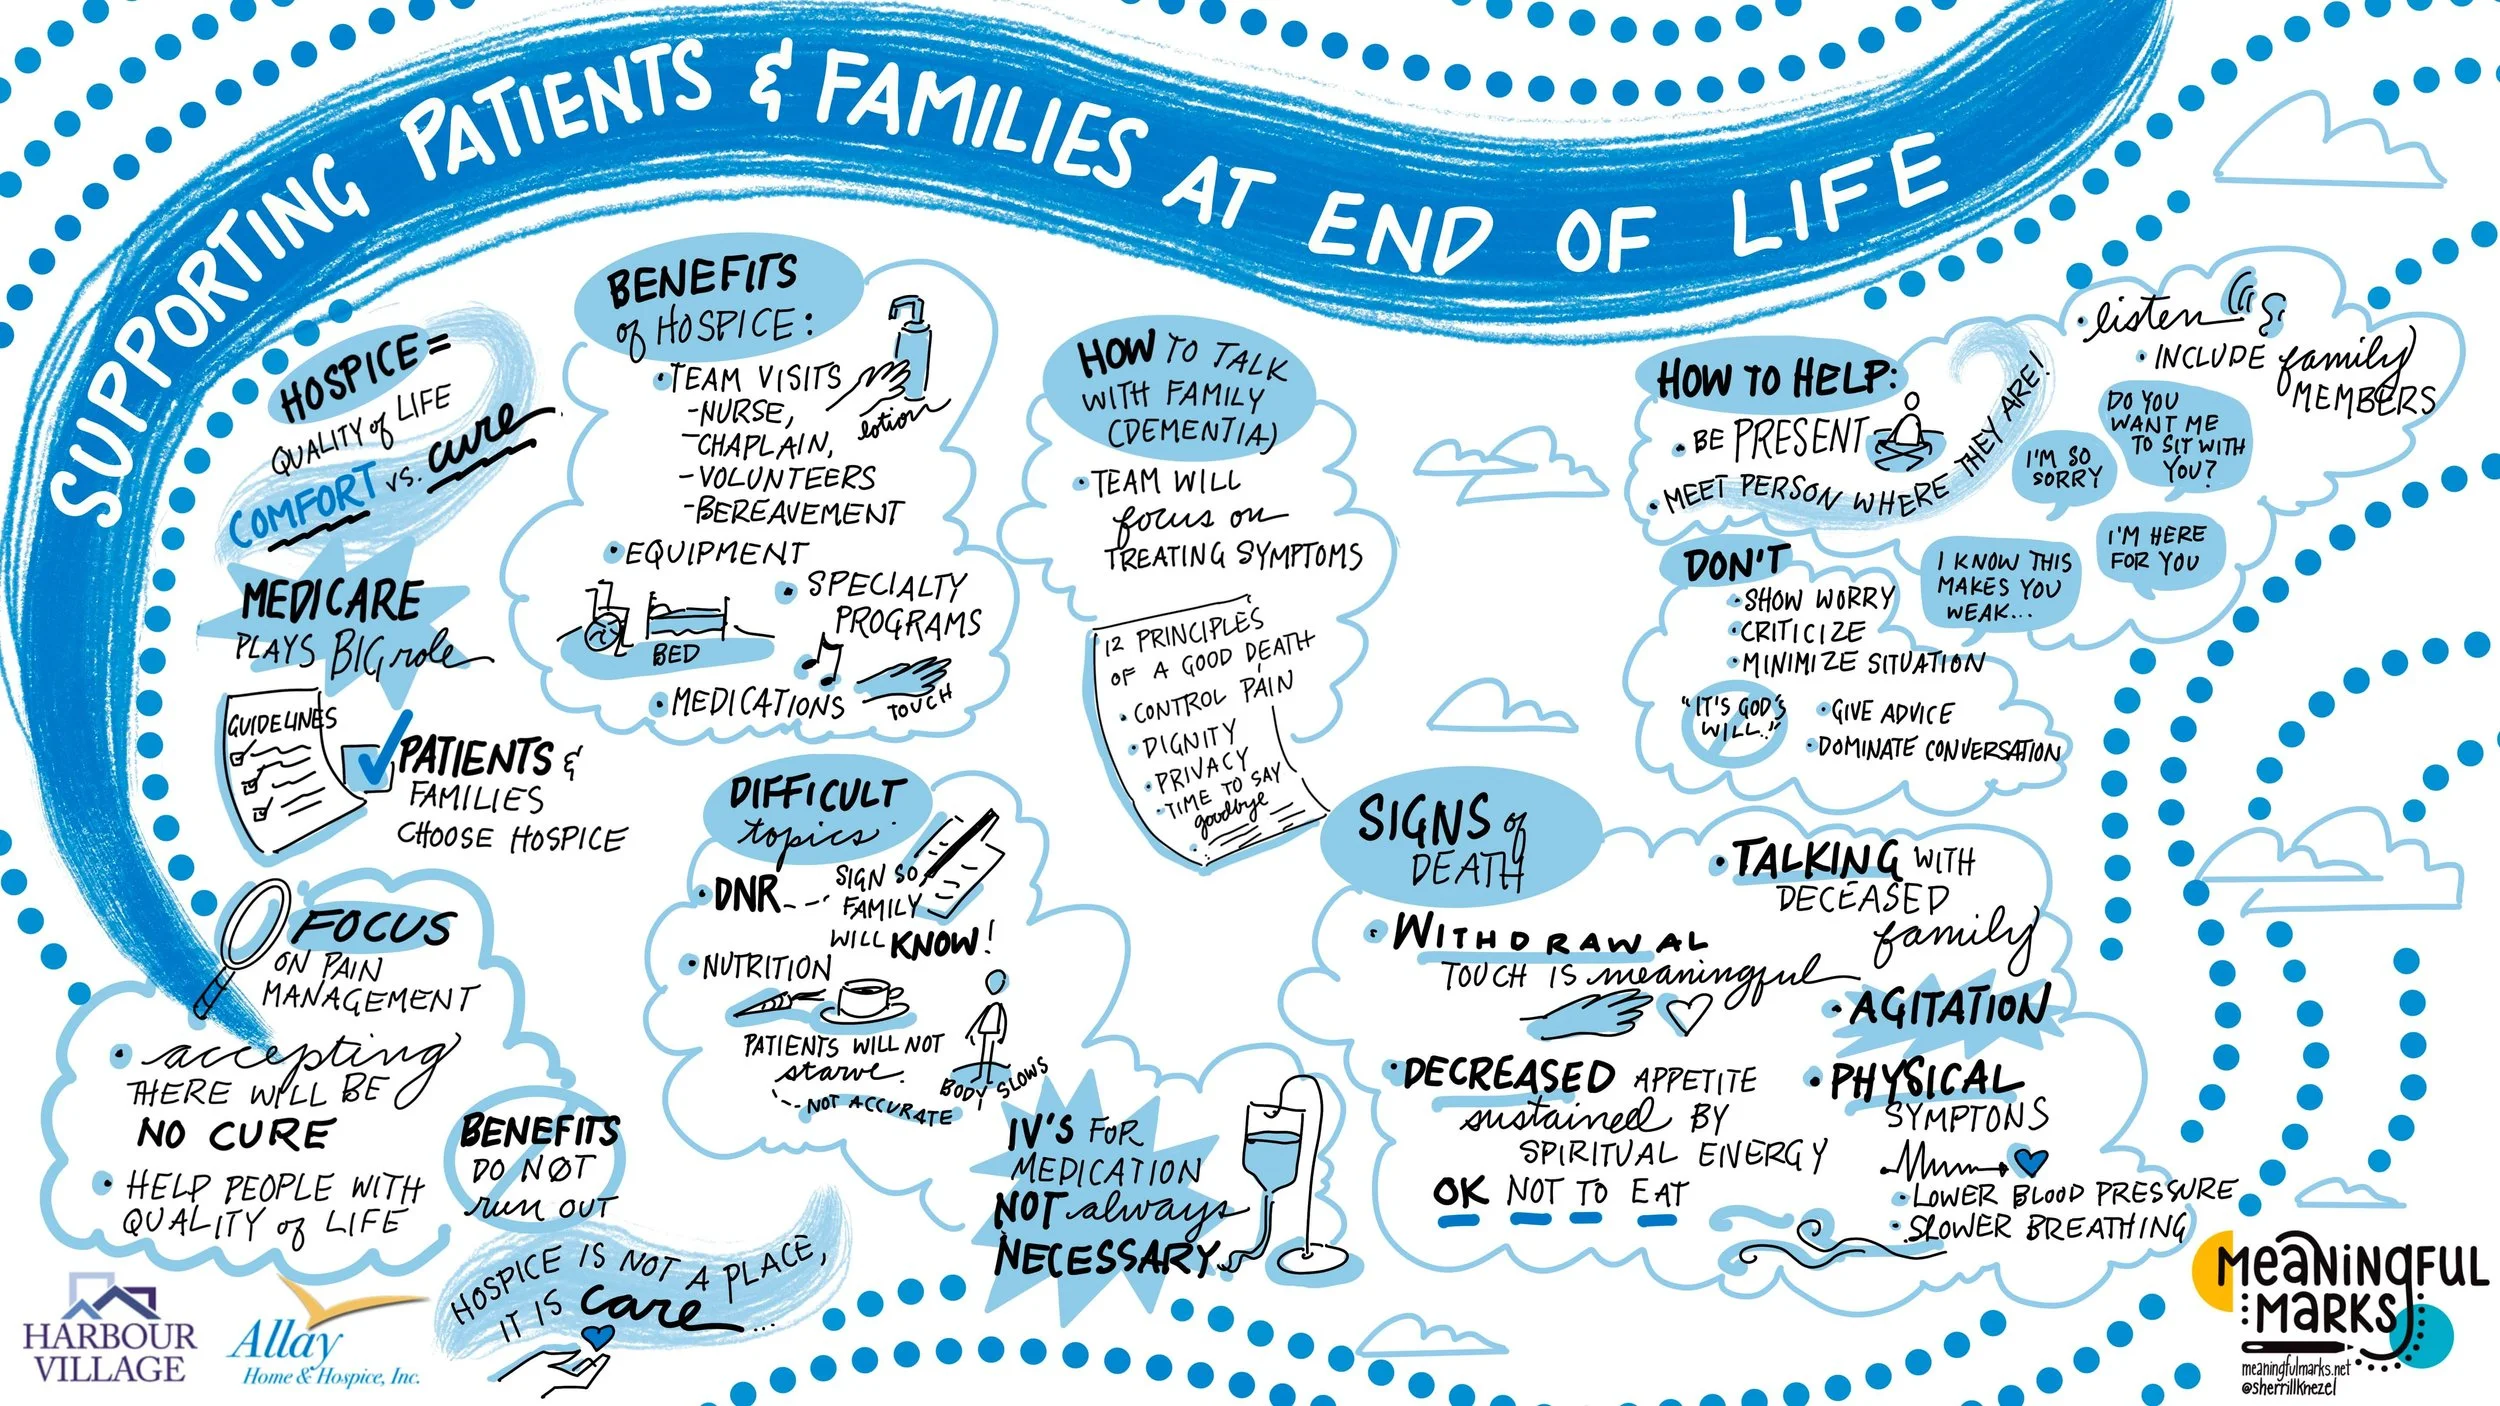 SUPPORTING PATIENTS & FAMILIES AT END OF LIFE
HOSPICE =
QUALITY of LIFE
COMFORT vs. cure
MEDICARE
PLAYS BIG role
GUIDELINES
PATIENTS &
FAMILIES
CHOOSE HOSPICE
FOCUS
ON PAIN
MANAGEMENT
• accepting
THERE WILL BE
NO CURE
• HELP PEOPLE WITH
QUALITY of LIFE
BENEFITS
DO NOT
run OUT
HOSPICE IS NOT A PLACE,
IT IS care...
BENEFITS
of HOSPICE:
• TEAM VISITS
- NURSE,
- CHAPLAIN,
- VOLUNTEERS
- BEREAVEMENT
lotion
• EQUIPMENT
BED
• SPECIALTY
PROGRAMS
TOUCH
• MEDICATIONS
DIFFICULT
topics:
• DNR---
SIGN SO
FAMILY
WILL KNOW!
• NUTRITION
PATIENTS WILL NOT
starve.
NOT ACCURATE
BODY SLOWS
IV'S FOR
MEDICATION
NOT always
NECESSARY
HOW TO TALK
WITH FAMILY
(DEMENTIA)
• TEAM WILL
focus on
TREATING SYMPTOMS
12 PRINCIPLES
OF A GOOD DEATH
• CONTROL PAIN
• DIGNITY
• PRIVACY
• TIME TO SAY
goodbye
HOW TO HELP:
• BE PRESENT
• MEET PERSON WHERE THEY ARE!
• listen
• INCLUDE family
MEMBERS
I'M SO
SORRY
DO YOU
WANT ME
TO SIT WITH
YOU?
I'M HERE
FOR YOU
I KNOW THIS
MAKES YOU
WEAK...
DON'T
• SHOW WORRY
• CRITICIZE
• MINIMIZE SITUATION
"IT'S GOD'S
WILL.."
• GIVE ADVICE
• DOMINATE CONVERSATION
SIGNS of
DEATH
• WITHDRAWAL
TOUCH IS meaningful
• DECREASED APPETITE
sustained BY
SPIRITUAL ENERGY
OK NOT TO EAT
• TALKING WITH
DECEASED
family
• AGITATION
• PHYSICAL
SYMPTONS
• LOWER BLOOD PRESSURE
• SLOWER BREATHING
HARBOUR
VILLAGE
Allay
Home & Hospice, Inc.
MEANINGFUL
MARKS
meaningfulmarks.net
@sherrillknezel